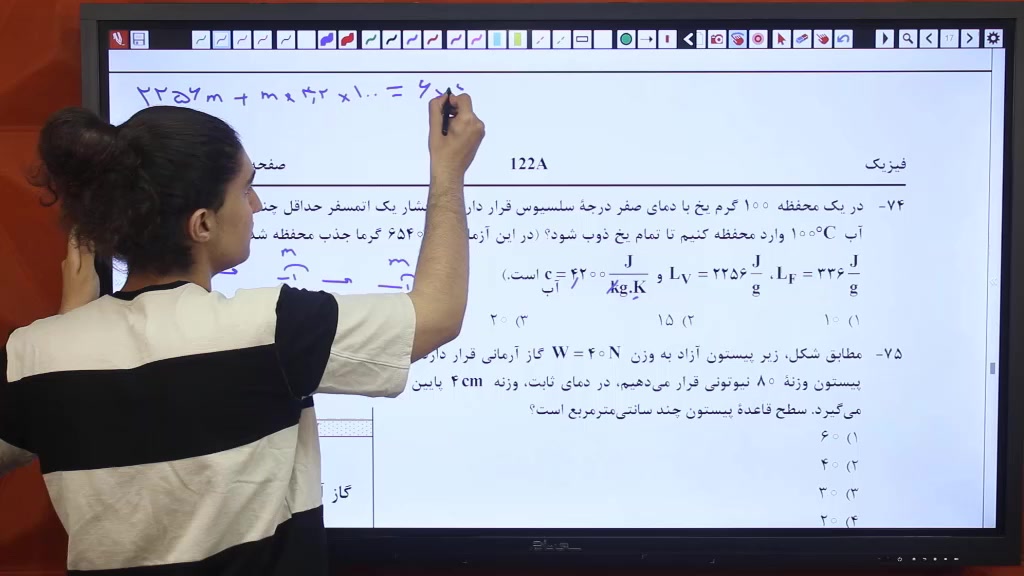 17
۲۲۵۶ m + m × ۴٫۲ × ۱۰۰ =
فیزیک
122A
صفحه
۷۴- در یک محفظه ۱۰۰ گرم یخ با دمای صفر درجهٔ سلسیوس قرار دارد. فشار یک اتمسفر حداقل چند
آب ۱۰۰°C وارد محفظه کنیم تا تمام یخ ذوب شود؟ (در این آزمایش ۶۵۴۰ گرما جذب محفظه
L_F = ۳۳۶ J/g، L_V = ۲۲۵۶ J/g و c آب = ۴۲۰۰ J/kg.K است.)
۱) ۱۰ ۲) ۱۵ ۳) ۲۰
m m
۷۵- مطابق شکل، زیر پیستون آزاد به وزن W = ۴۰N گاز آرمانی قرار دارد.
پیستون وزنهٔ ۸۰ نیوتونی قرار می‌دهیم، در دمای ثابت، وزنه ۴cm پایین
می‌گیرد. سطح قاعدهٔ پیستون چند سانتی‌مترمربع است؟
۱) ۶۰
۲) ۴۰
۳) ۳۰
۴) ۲۰
گاز